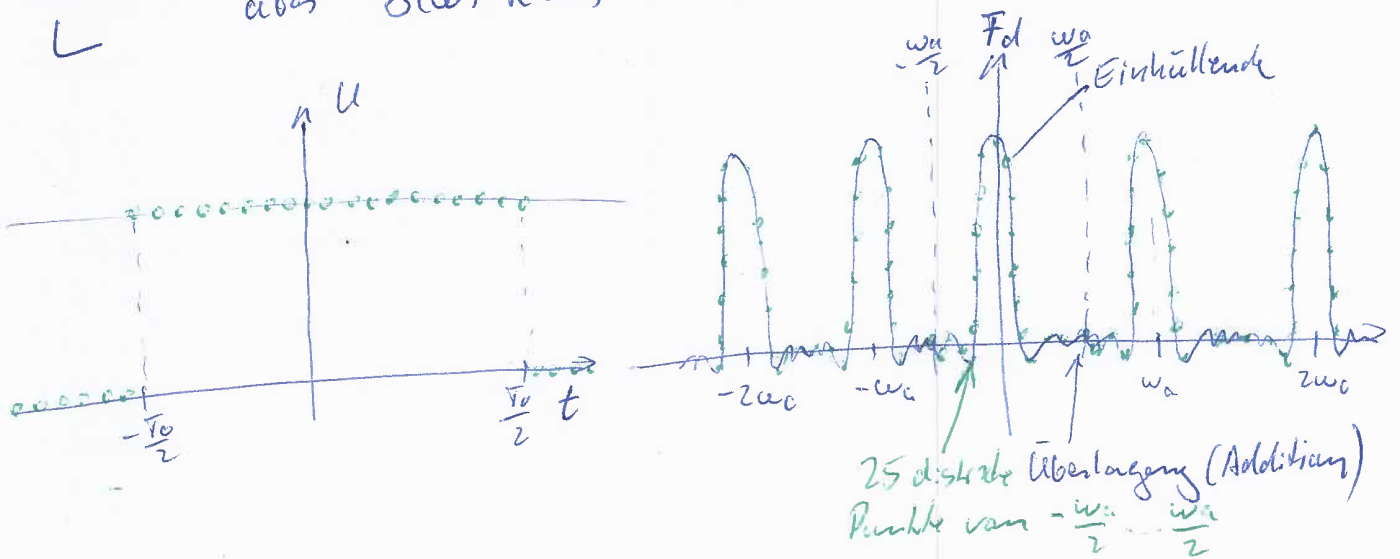 U
-T₀/2
T₀/2
t
-ωa/2
Fd
ωa/2
Einhüllende
-2ωa
-ωa
ωa
2ωa
25 diskrete
Punkte von -ωa/2 ... ωa/2
Überlagerung (Addition)